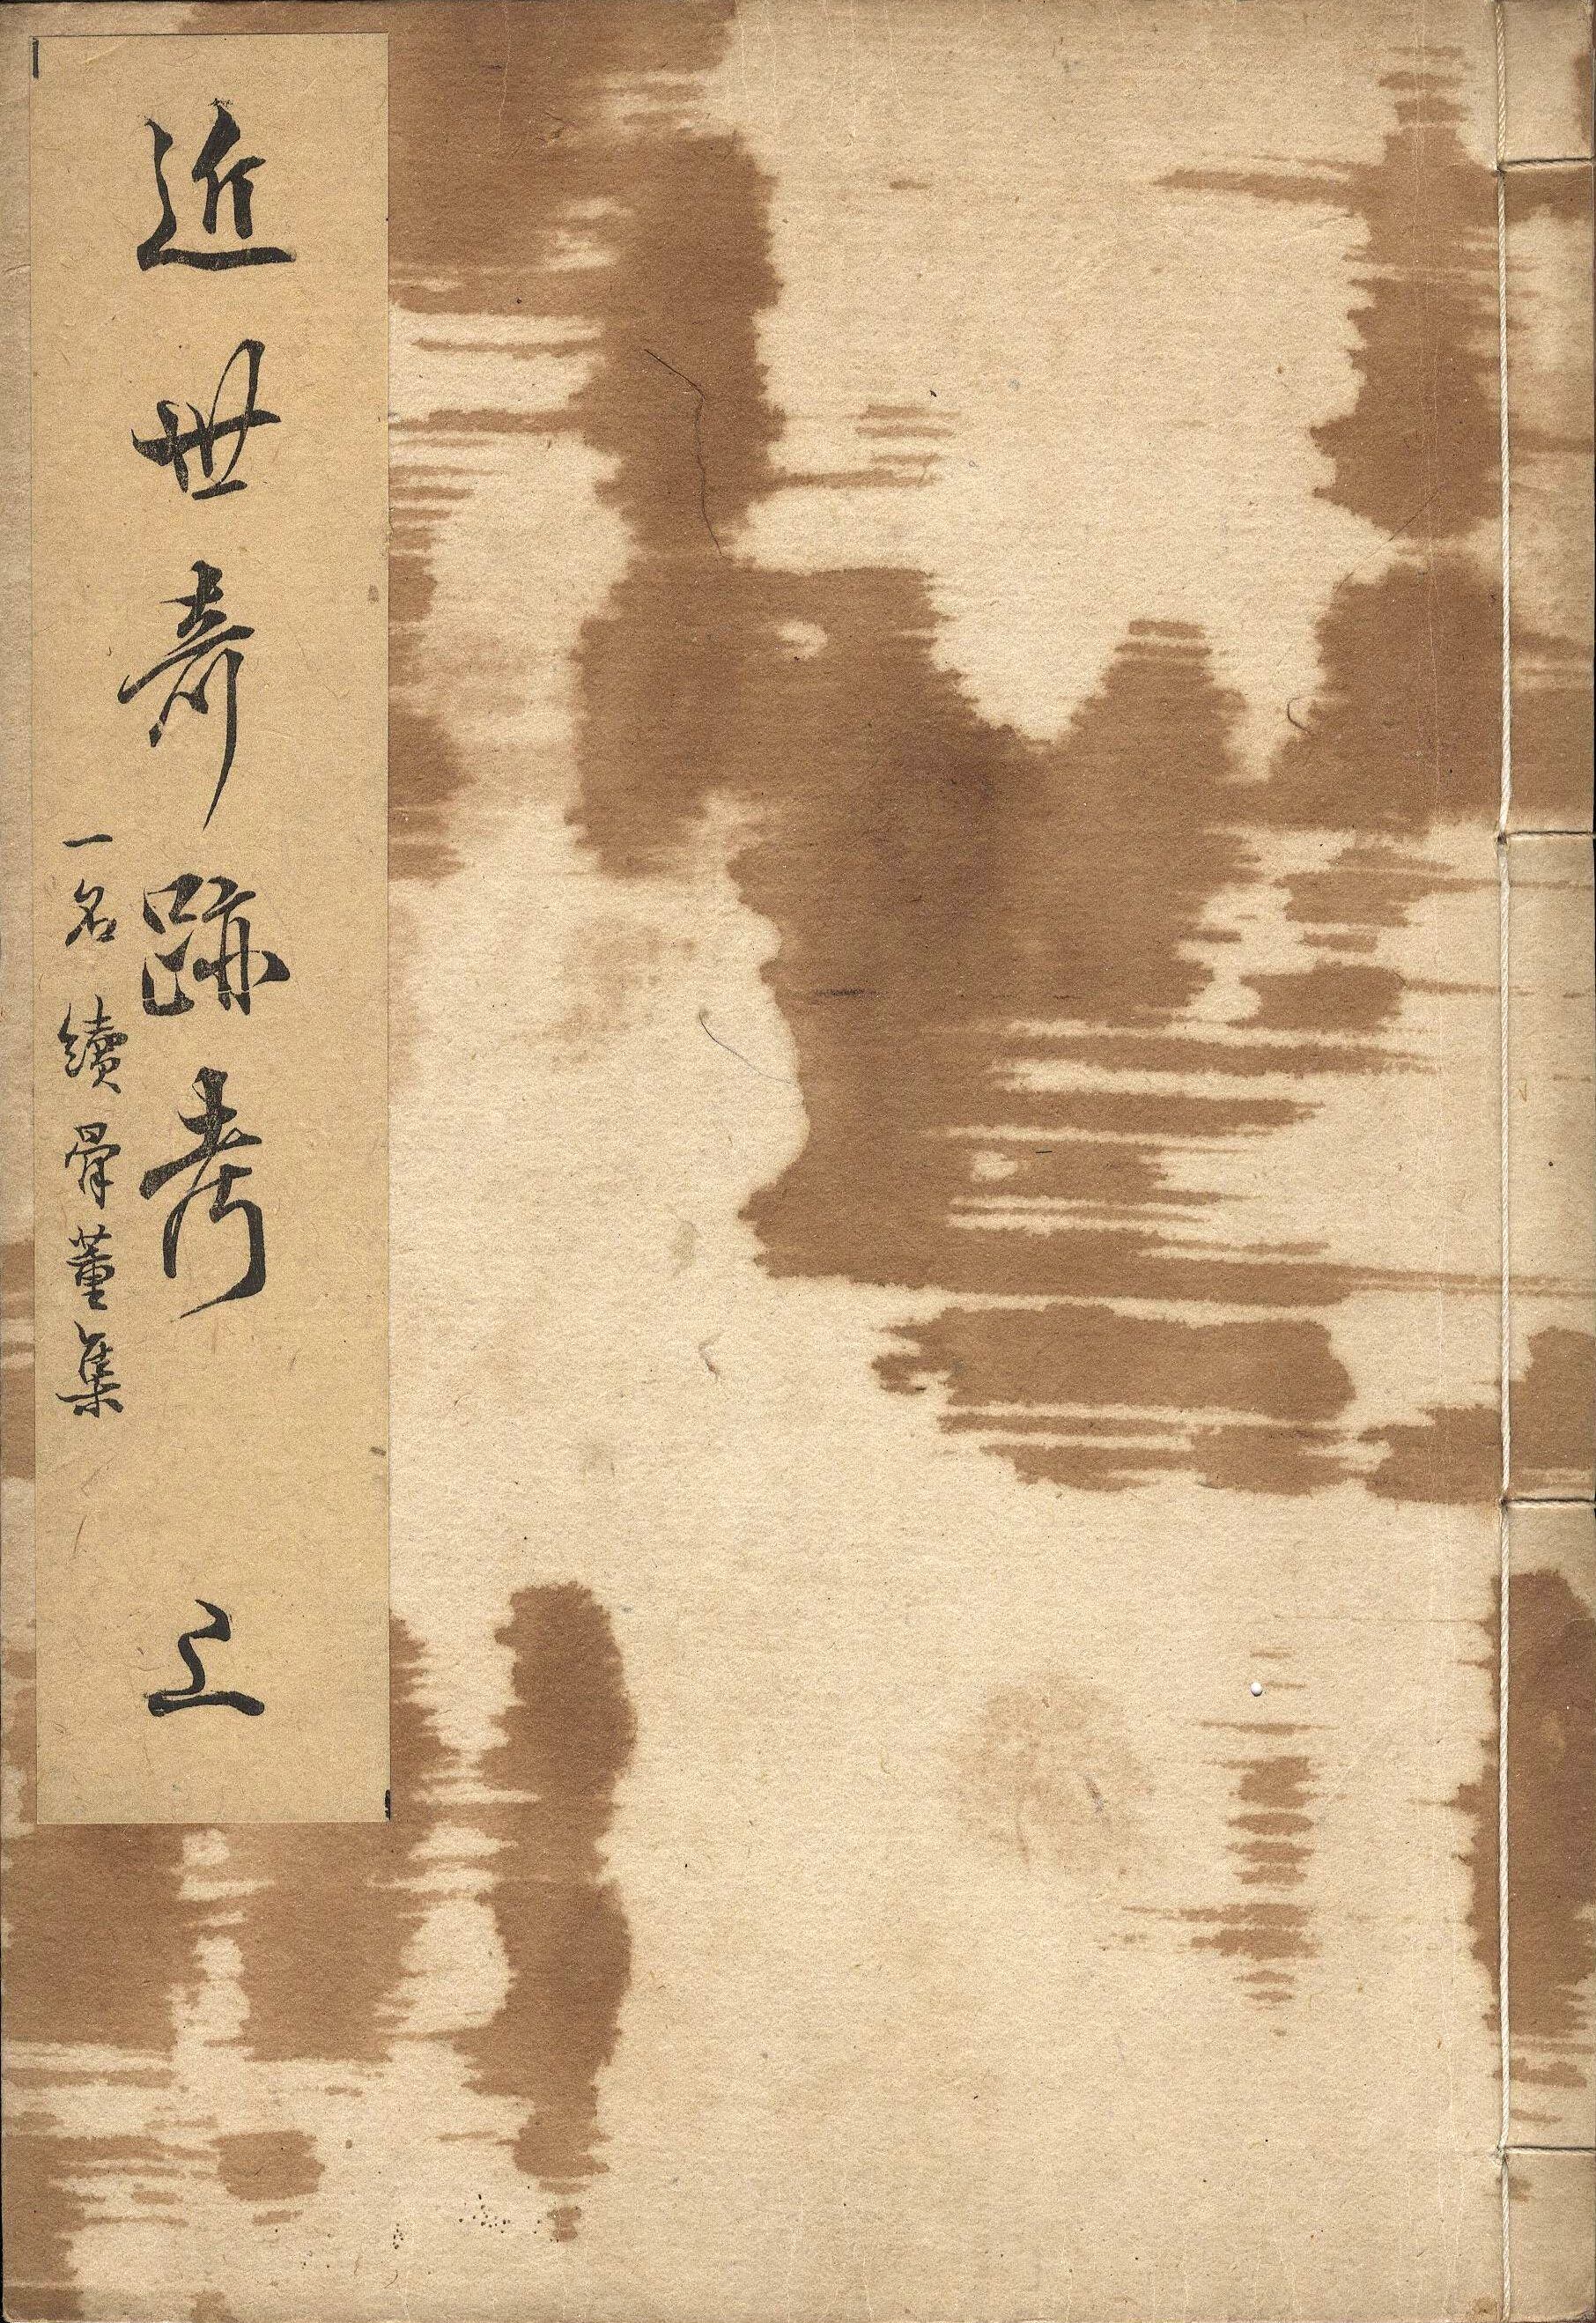 近世奇跡考 上
一名 續骨董集